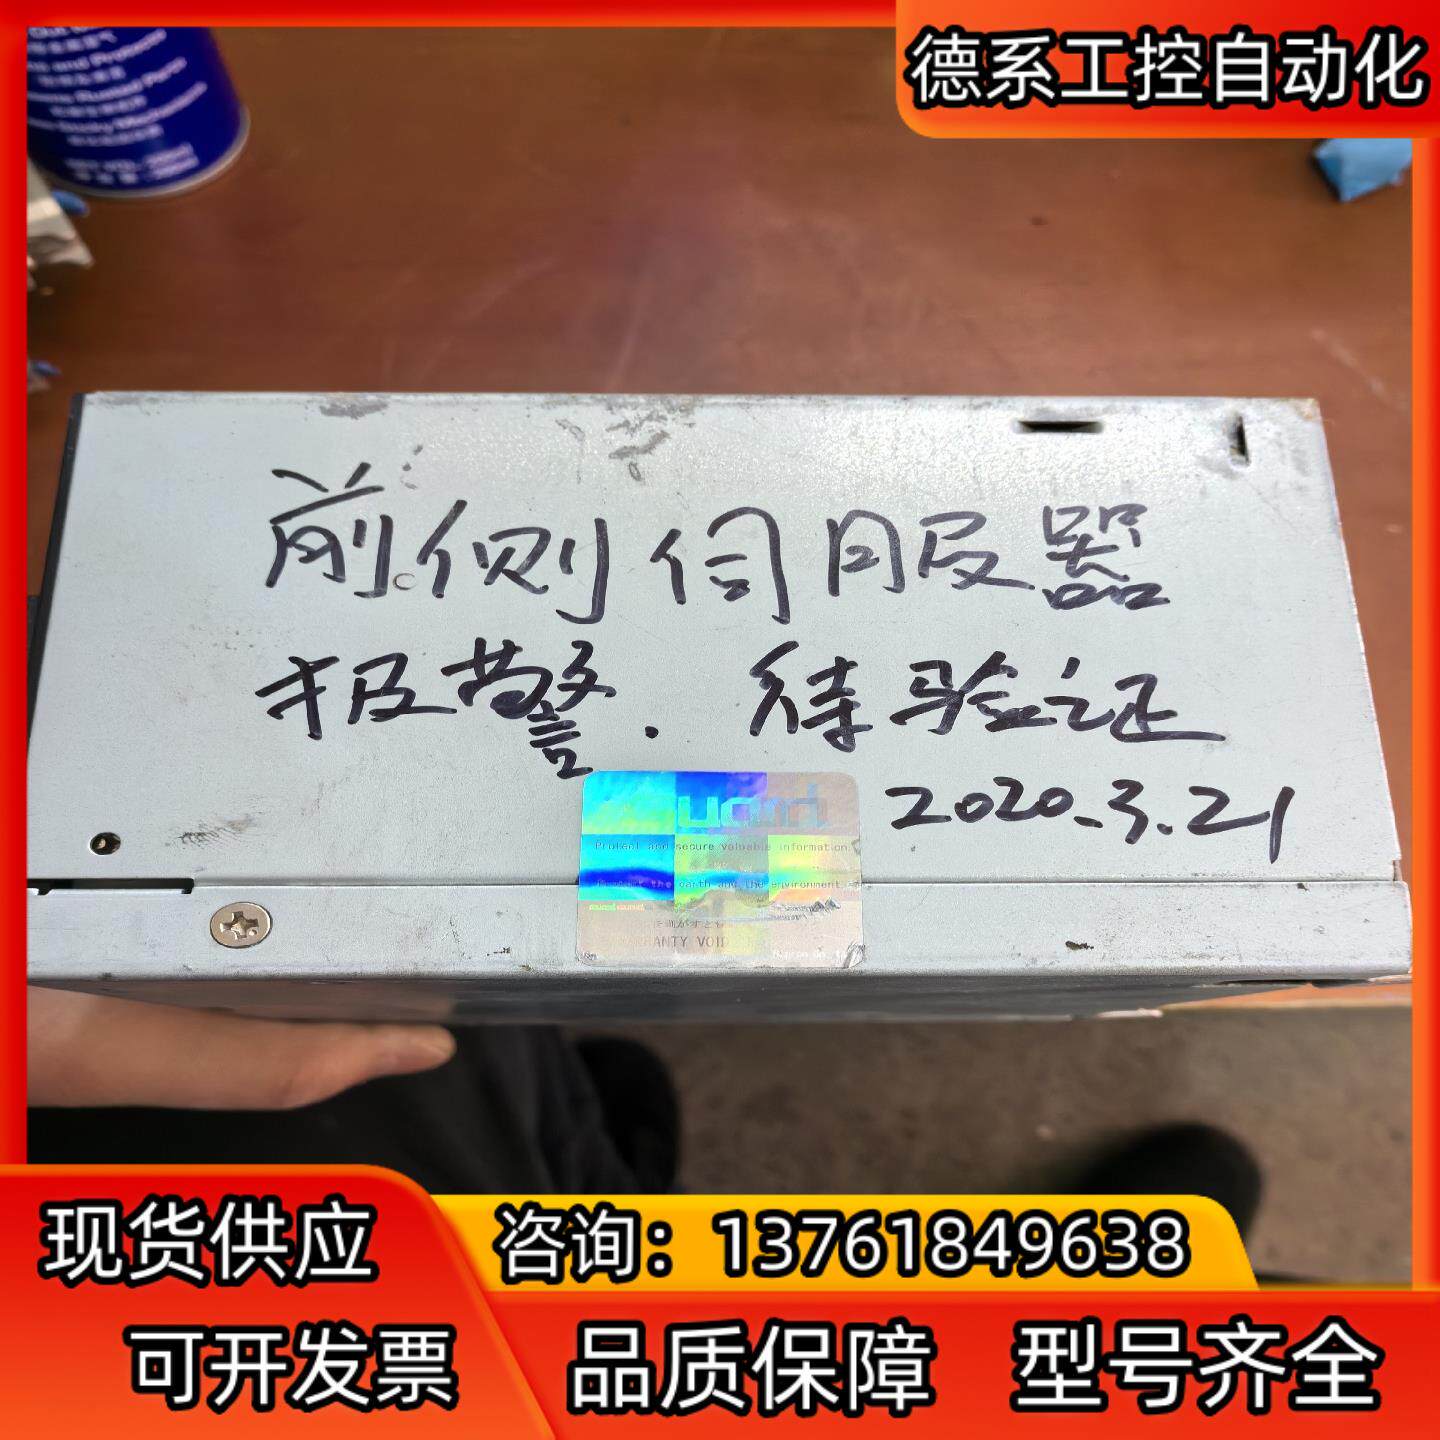 德系工控自动化
前侧伺服器
报警.待验证
2020.3.21
Protect and secure valuable information
the earth and the environment
WARRANTY VOID
现货供应
咨询：13761849638
可开发票
品质保障
型号齐全